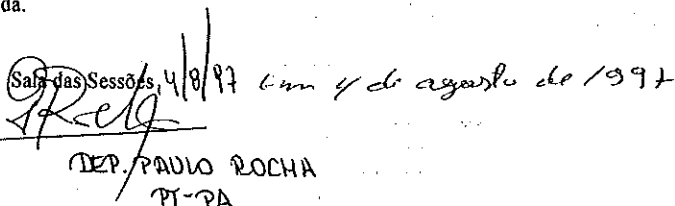 da.
Sala das Sessões, 4/8/97 em 4 de agosto de 1997
DEP. PAULO ROCHA
PT-PA